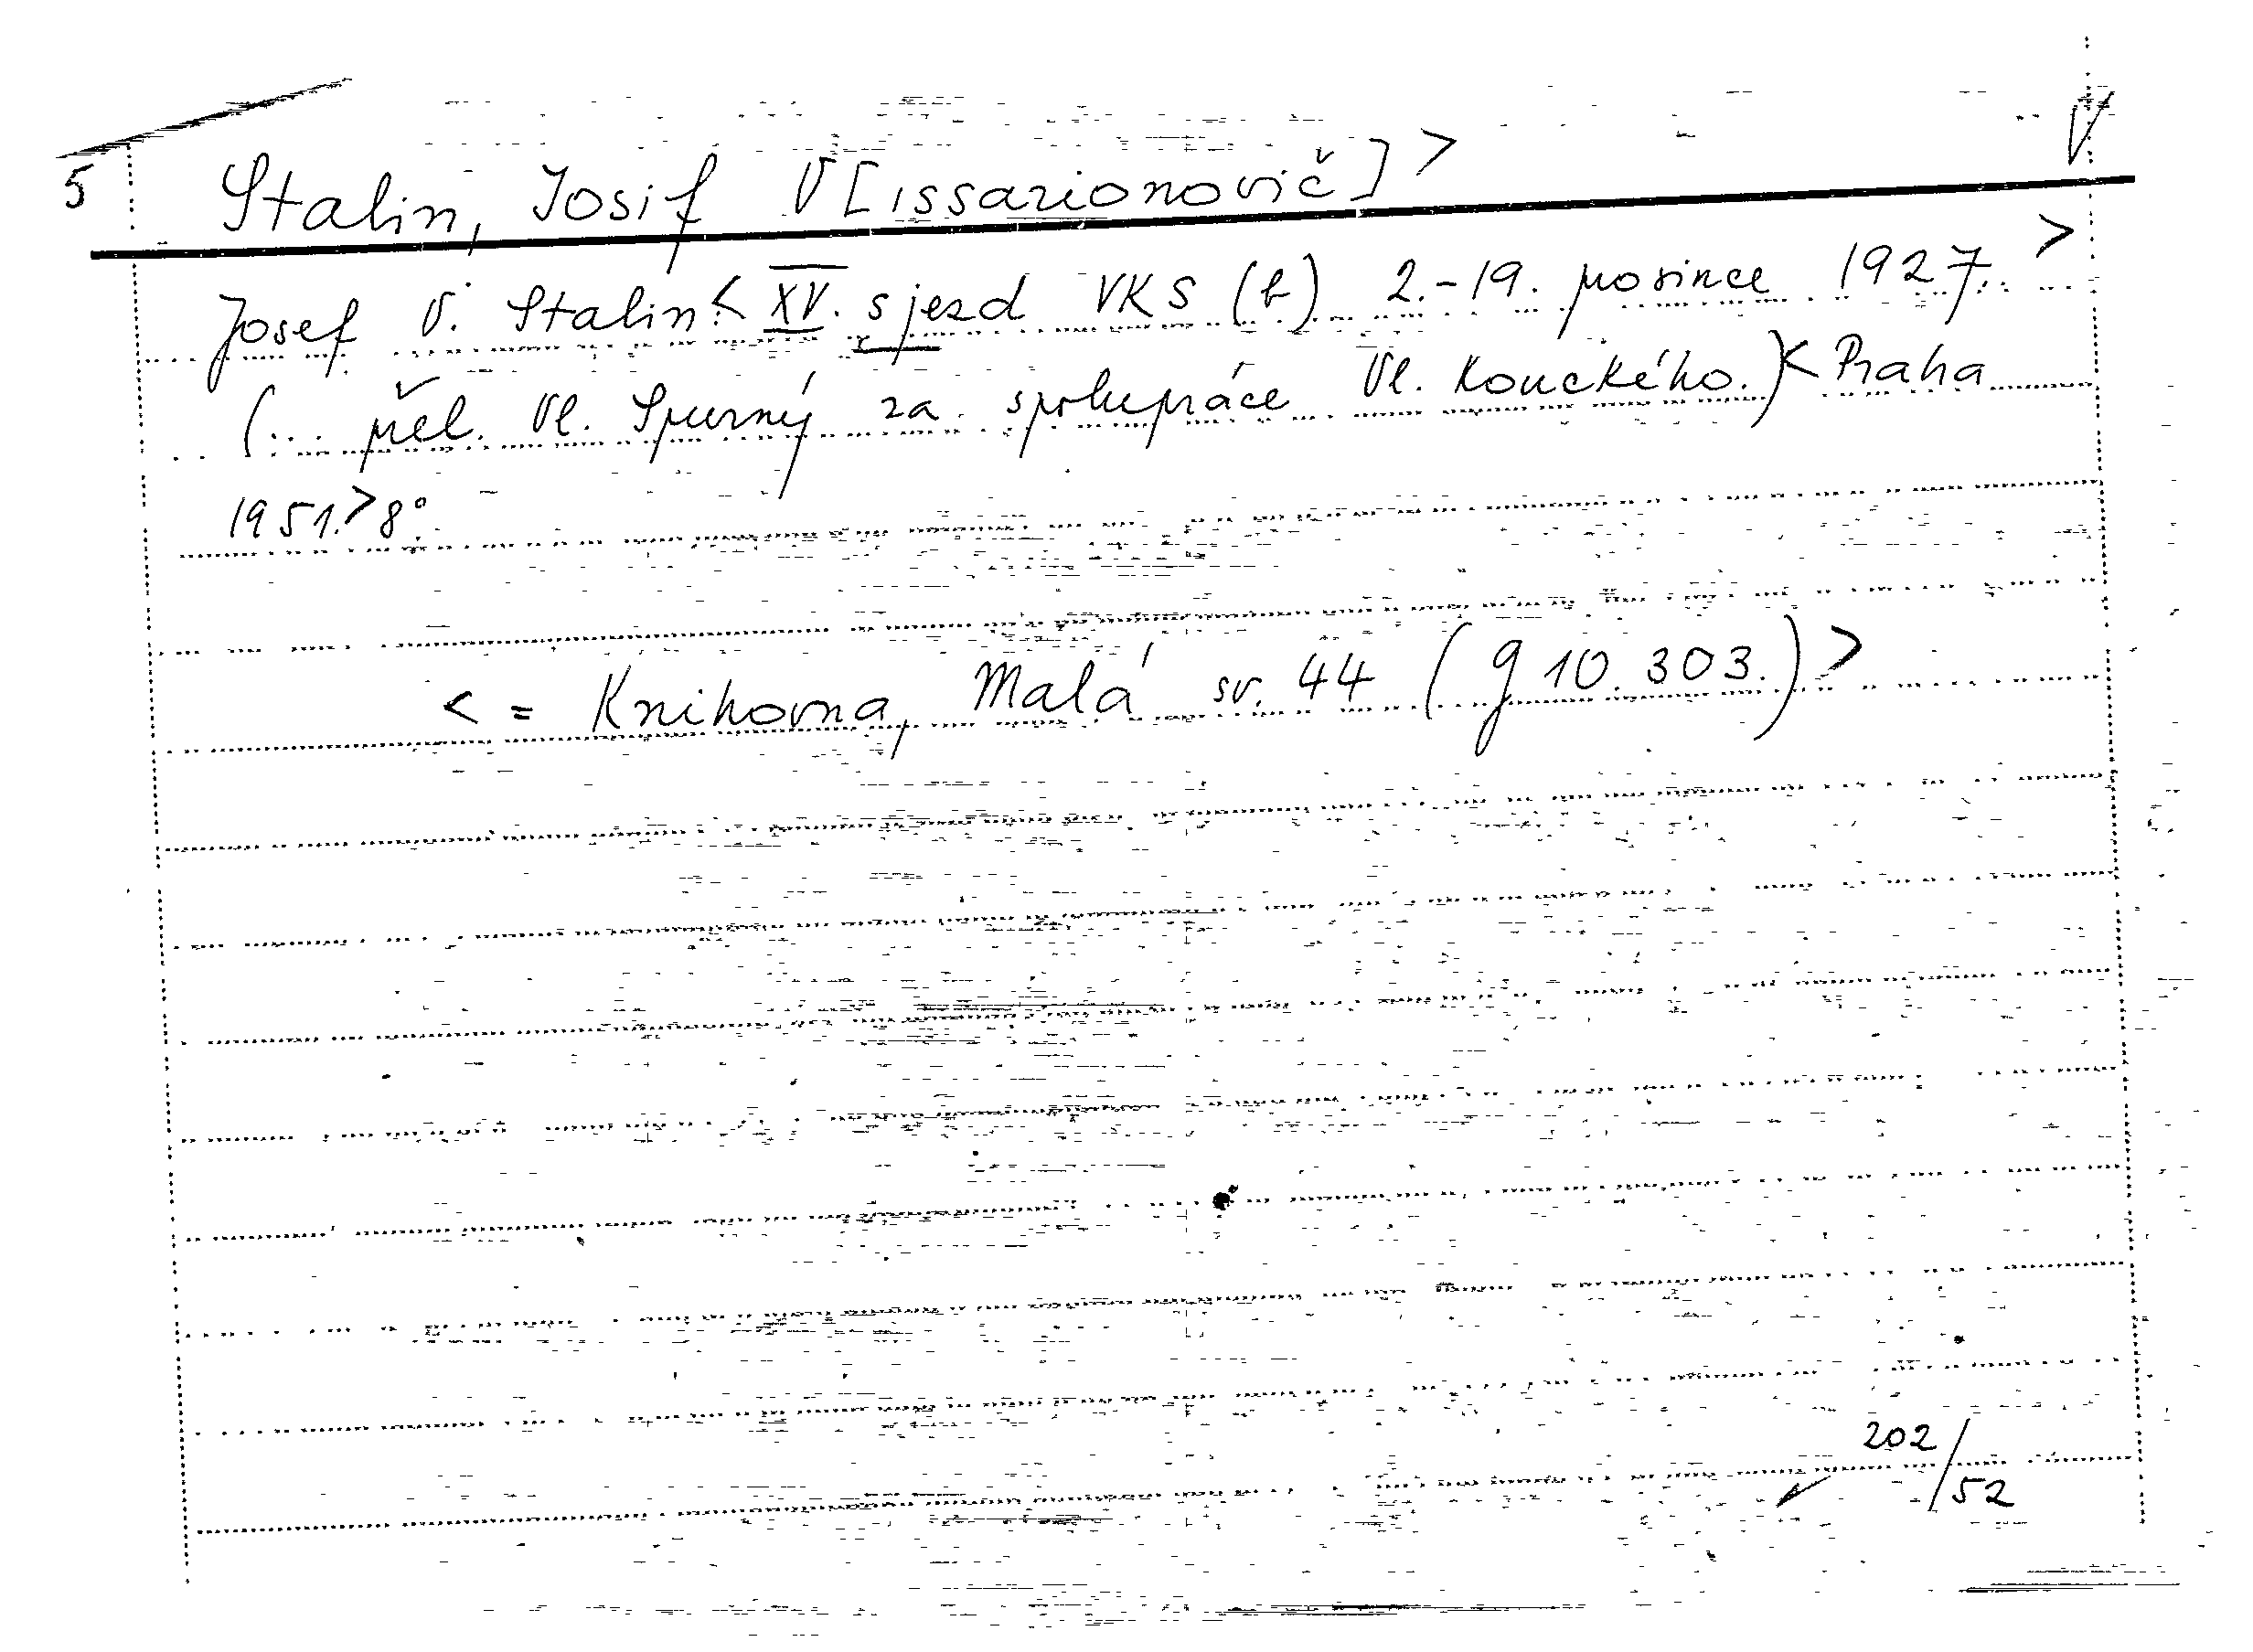 5 Stalin, Iosif V[issarionovič]>
Josef V. Stalin:< XV. sjezd VKS (b) 2.-19. prosince 1927. >
(... přel. Vl. Spurný za spolupráce Vl. Kouckého.)< Praha
1951.> 8°.
< = Knihovna, Malá sv. 44 (g 10.303.)>
202/52